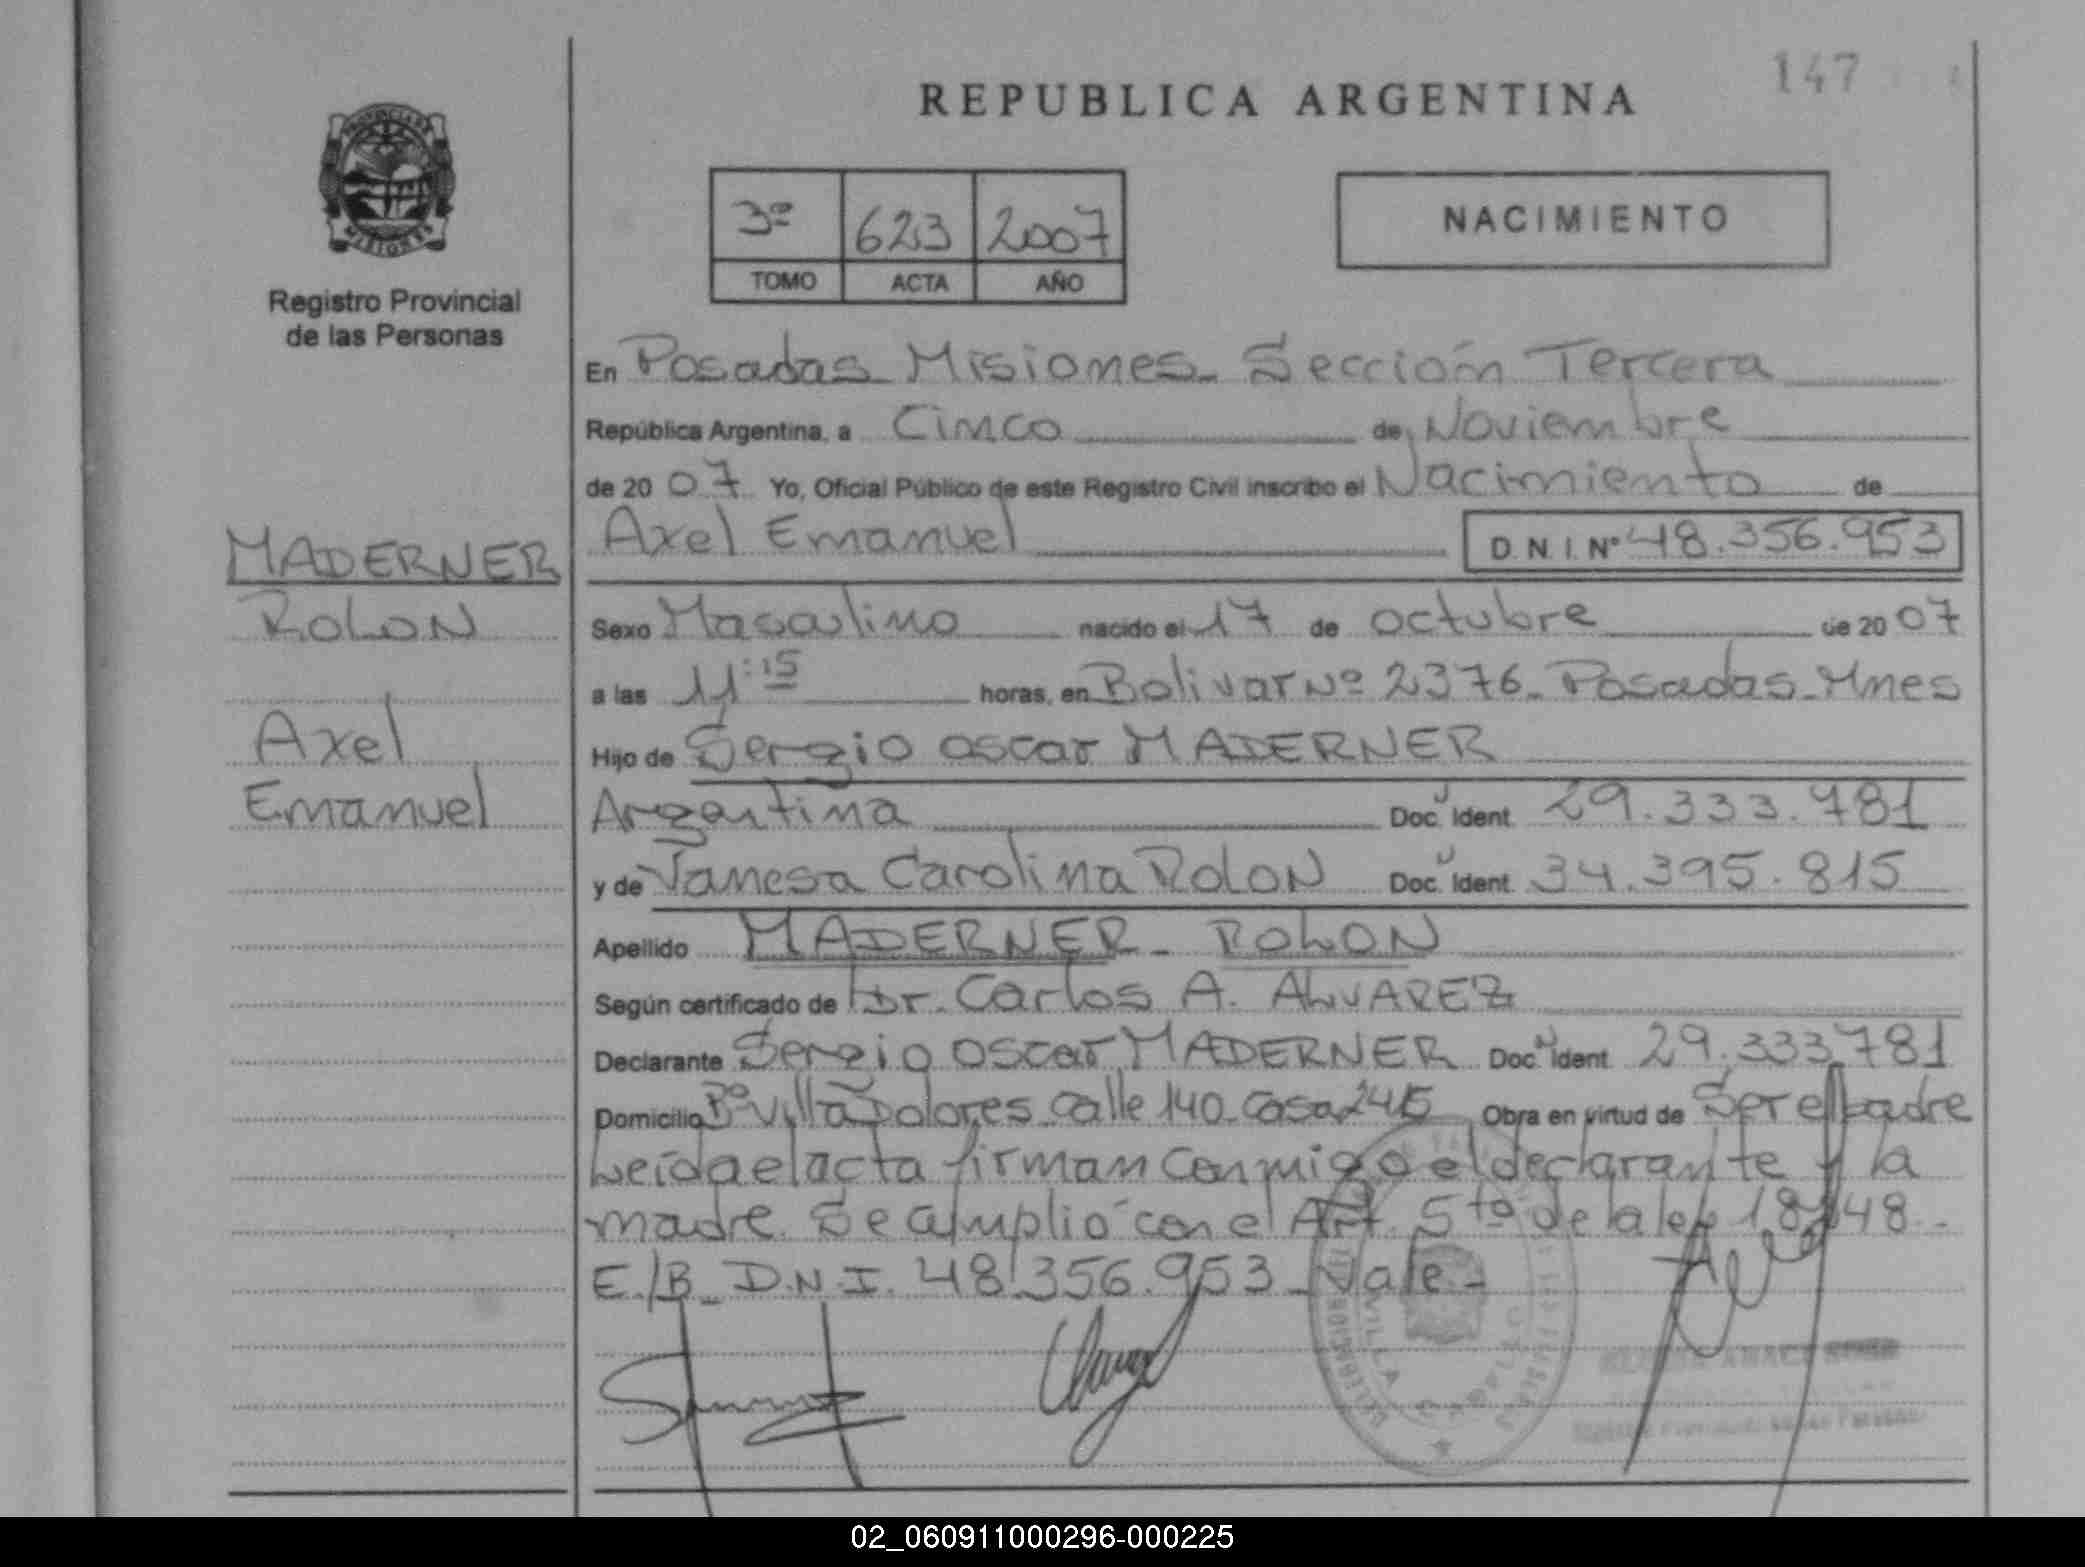 147
REPUBLICA ARGENTINA
PROVINCIA DE
MISIONES
Registro Provincial
de las Personas
3º 623 2007
TOMO ACTA AÑO
NACIMIENTO
En Posadas Misiones Sección Tercera
República Argentina, a Cinco de Noviembre
de 20 07 Yo, Oficial Público de este Registro Civil inscribo el Nacimiento de
Axel Emanuel D.N.I. Nº 48.356.953
MADERNER
ROLON
Axel
Emanuel
Sexo Masculino nacido el 17 de octubre de 20 07
a las 11:15 horas, en Bolivar Nº 2376 - Posadas - Mnes
Hijo de Sergio Oscar MADERNER
Argentina Doc. Ident. 29.333.781
y de Vanesa Carolina ROLON Doc. Ident. 34.395.815
Apellido MADERNER - ROLON
Según certificado de Dr. Carlos A. ALVAREZ
Declarante Sergio Oscar MADERNER Doc. Ident. 29.333.781
Domicilio Bº Villa Dolores calle 140 Casa Obra en virtud de Ser el padre
Leída el acta firman conmigo el declarante y la
madre. Se cumplió con el Art. 5to de la ley
E/B D.N.I. 48.356.953 Vale -
02_060911000296-000225